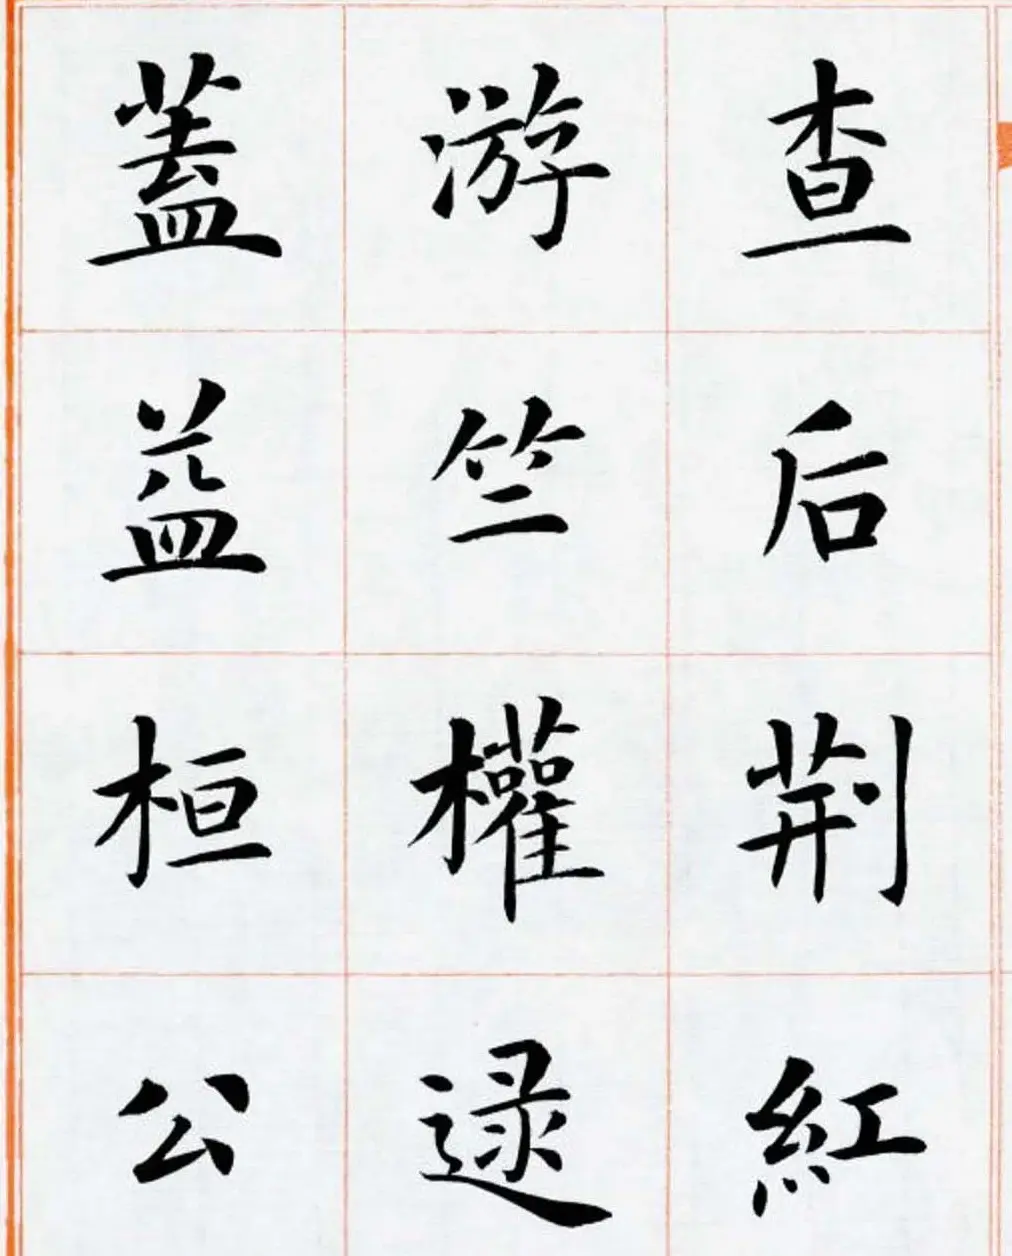 查后荆紅
游竺權逯
蓋益桓公